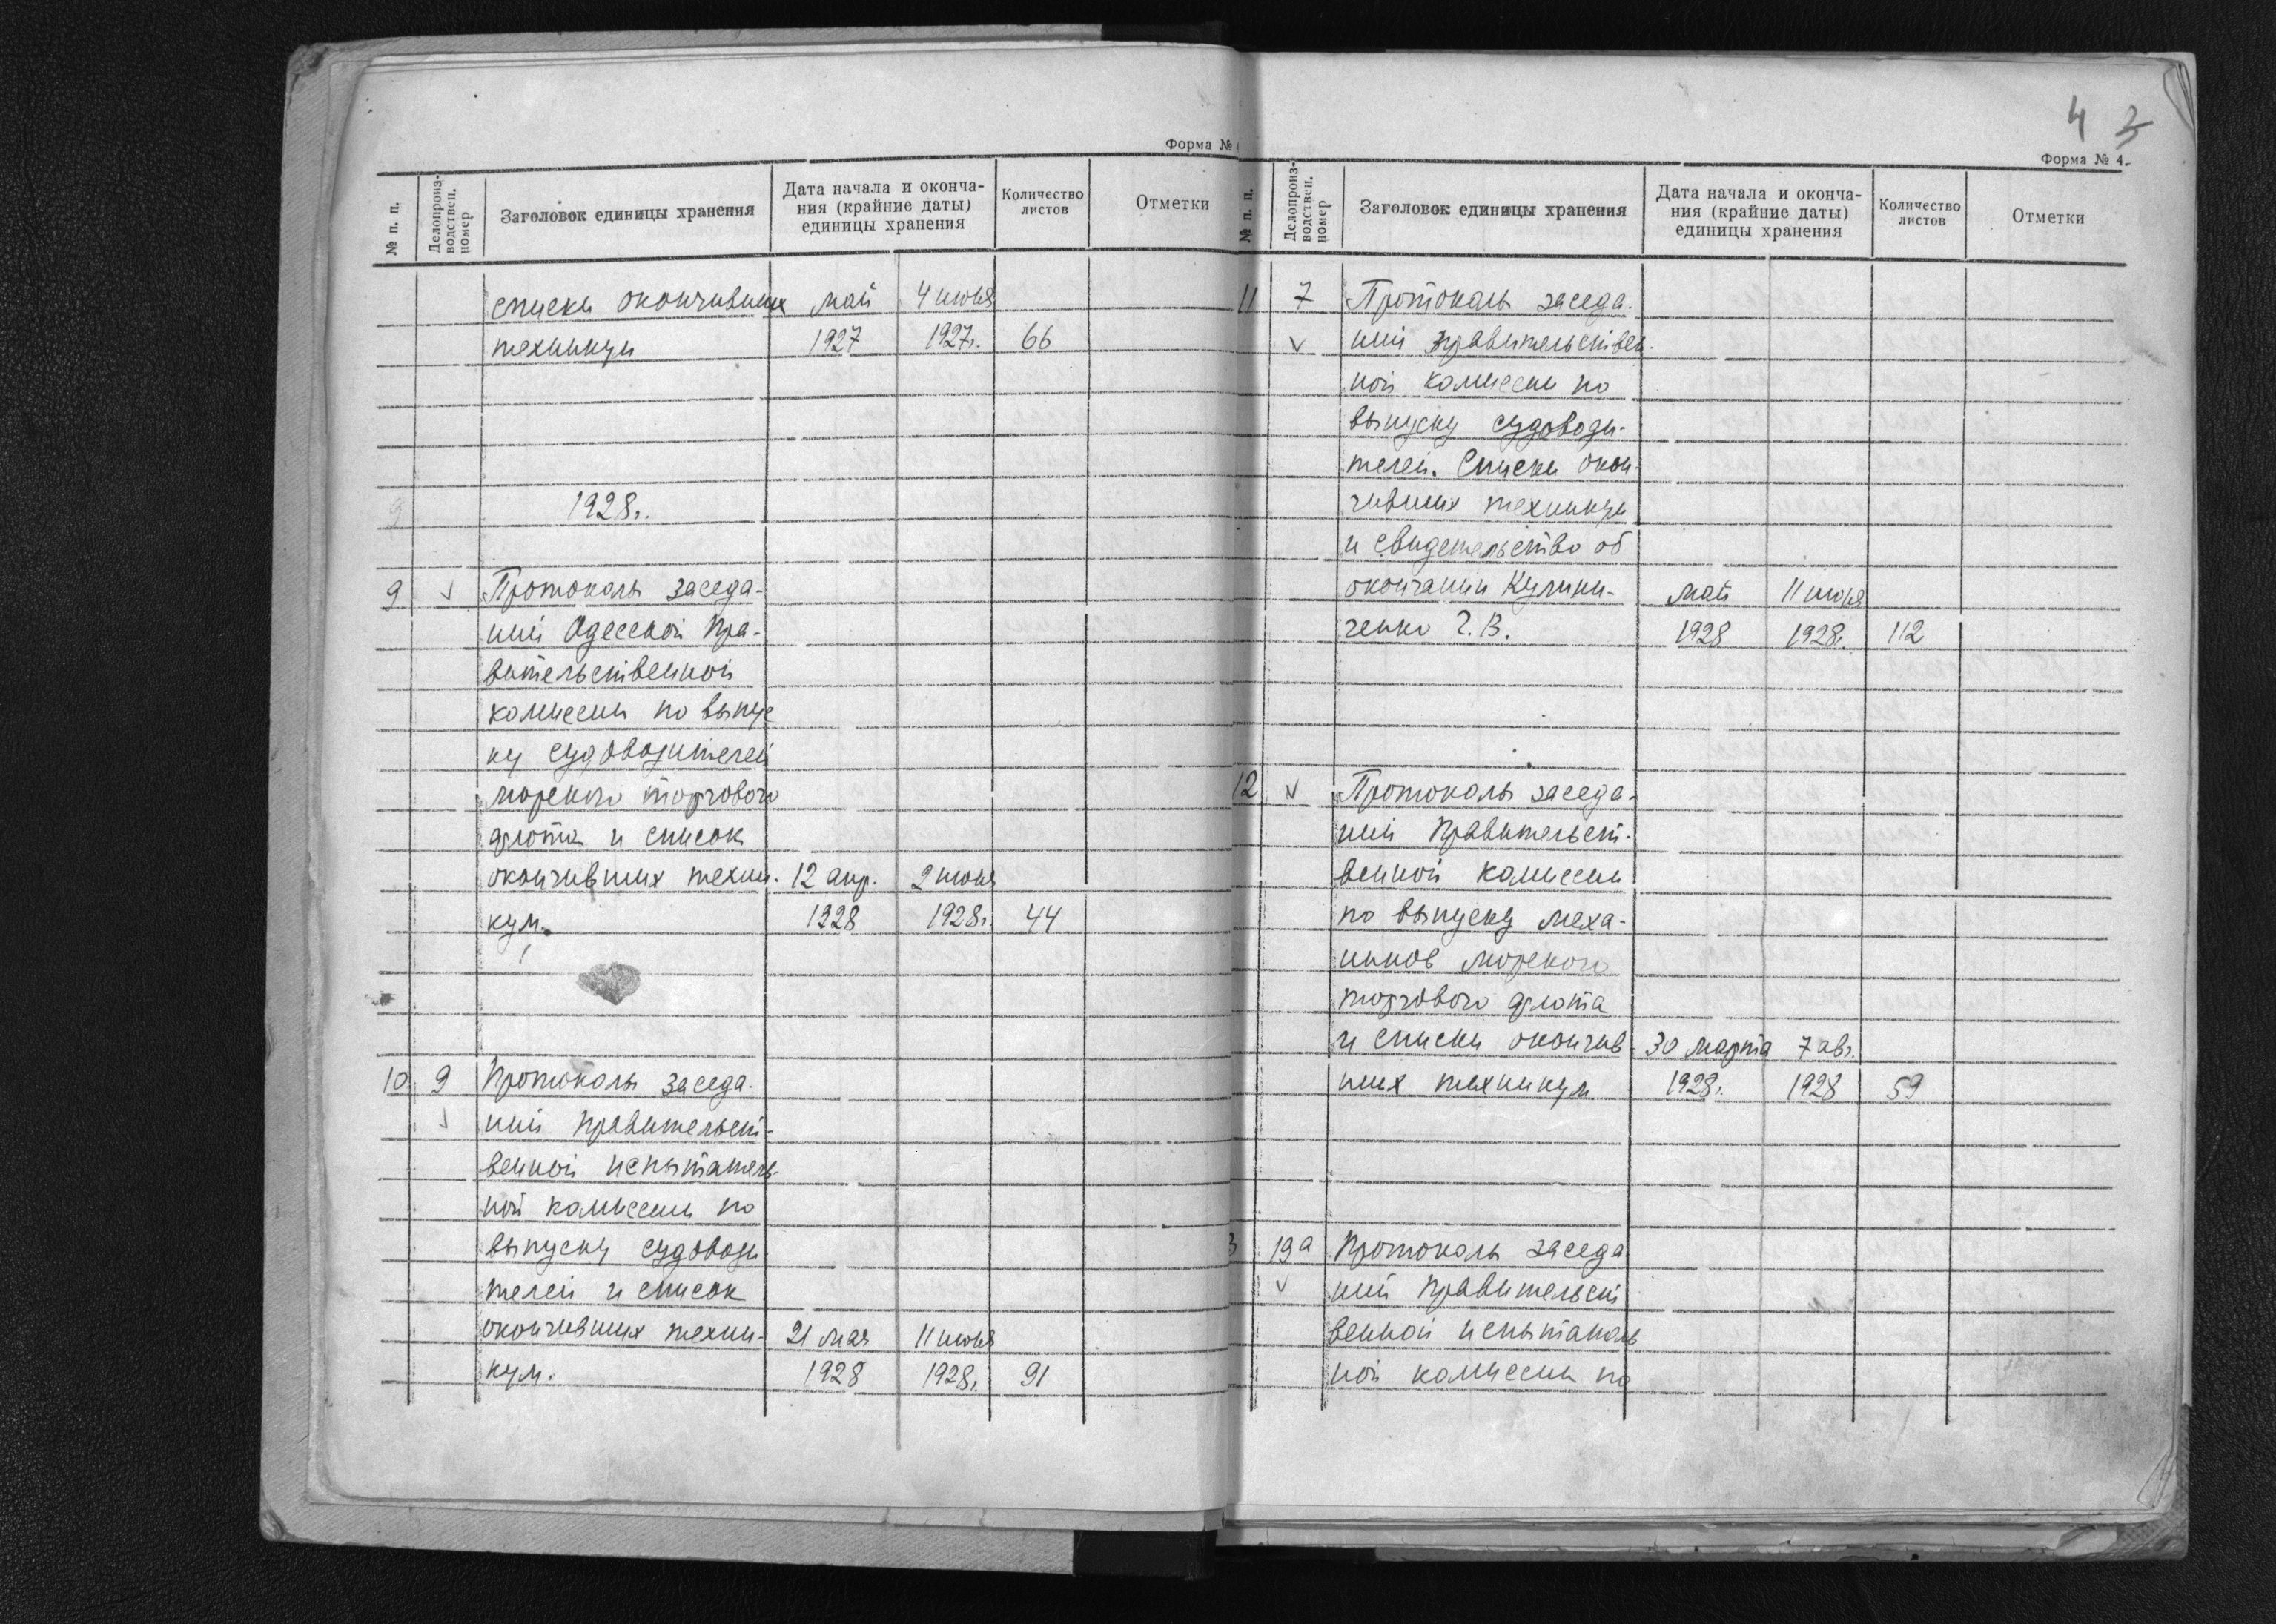 Форма №
№ п. п.
Делопроиз-
водствен.
номер
Заголовок единицы хранения
Дата начала и оконча-
ния (крайние даты)
единицы хранения
Количество
листов
Отметки
списки окончивших май 4 июня
техникум 1927 1927г. 66
1928г.
9 v Протоколы заседа-
ний Одесской Пра-
вительственной
комиссии по выпус
ку судоводителей
морского торгового
флота и список
окончивших техни- 12 апр. 2 июня
кум. 1928 1928г. 44
10 9 Протоколы заседа-
v ний правительст-
венной испытатель-
ной комиссии по
выпуску судоводи
телей и список
окончивших техни- 21 мая 11 июня
кум. 1928 1928г. 91
4 3
Форма № 4.
№ п. п.
Делопроиз-
водствен.
номер
Заголовок единицы хранения
Дата начала и оконча-
ния (крайние даты)
единицы хранения
Количество
листов
Отметки
11 7 Протоколы заседа-
v ний правительствен-
ной комиссии по
выпуску судоводи-
телей. Списки окон-
чивших техникум
и свидетельство об
окончании Кулини- май 11 июня
ченко Г.В. 1928 1928г. 112
12 v Протоколы заседа-
ний Правительст-
венной комиссии
по выпуску меха-
ников морского
торгового флота
и списки окончив- 30 марта 7 авг.
ших техникум 1928г. 1928 59
3 19а Протоколы заседа
v ний Правительст
венной испытатель
ной комиссии по